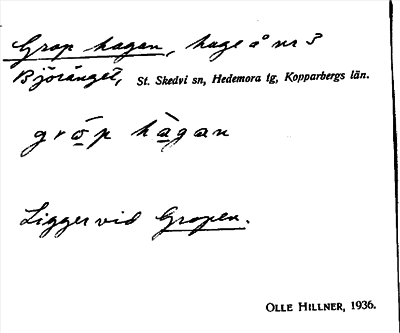 Grop hagan, hage å nr 3
Björänget, St. Skedvi sn, Hedemora tg, Kopparbergs län.
grò̱p hà̱gan
Ligger vid Gropen.
OLLE HILLNER, 1936.